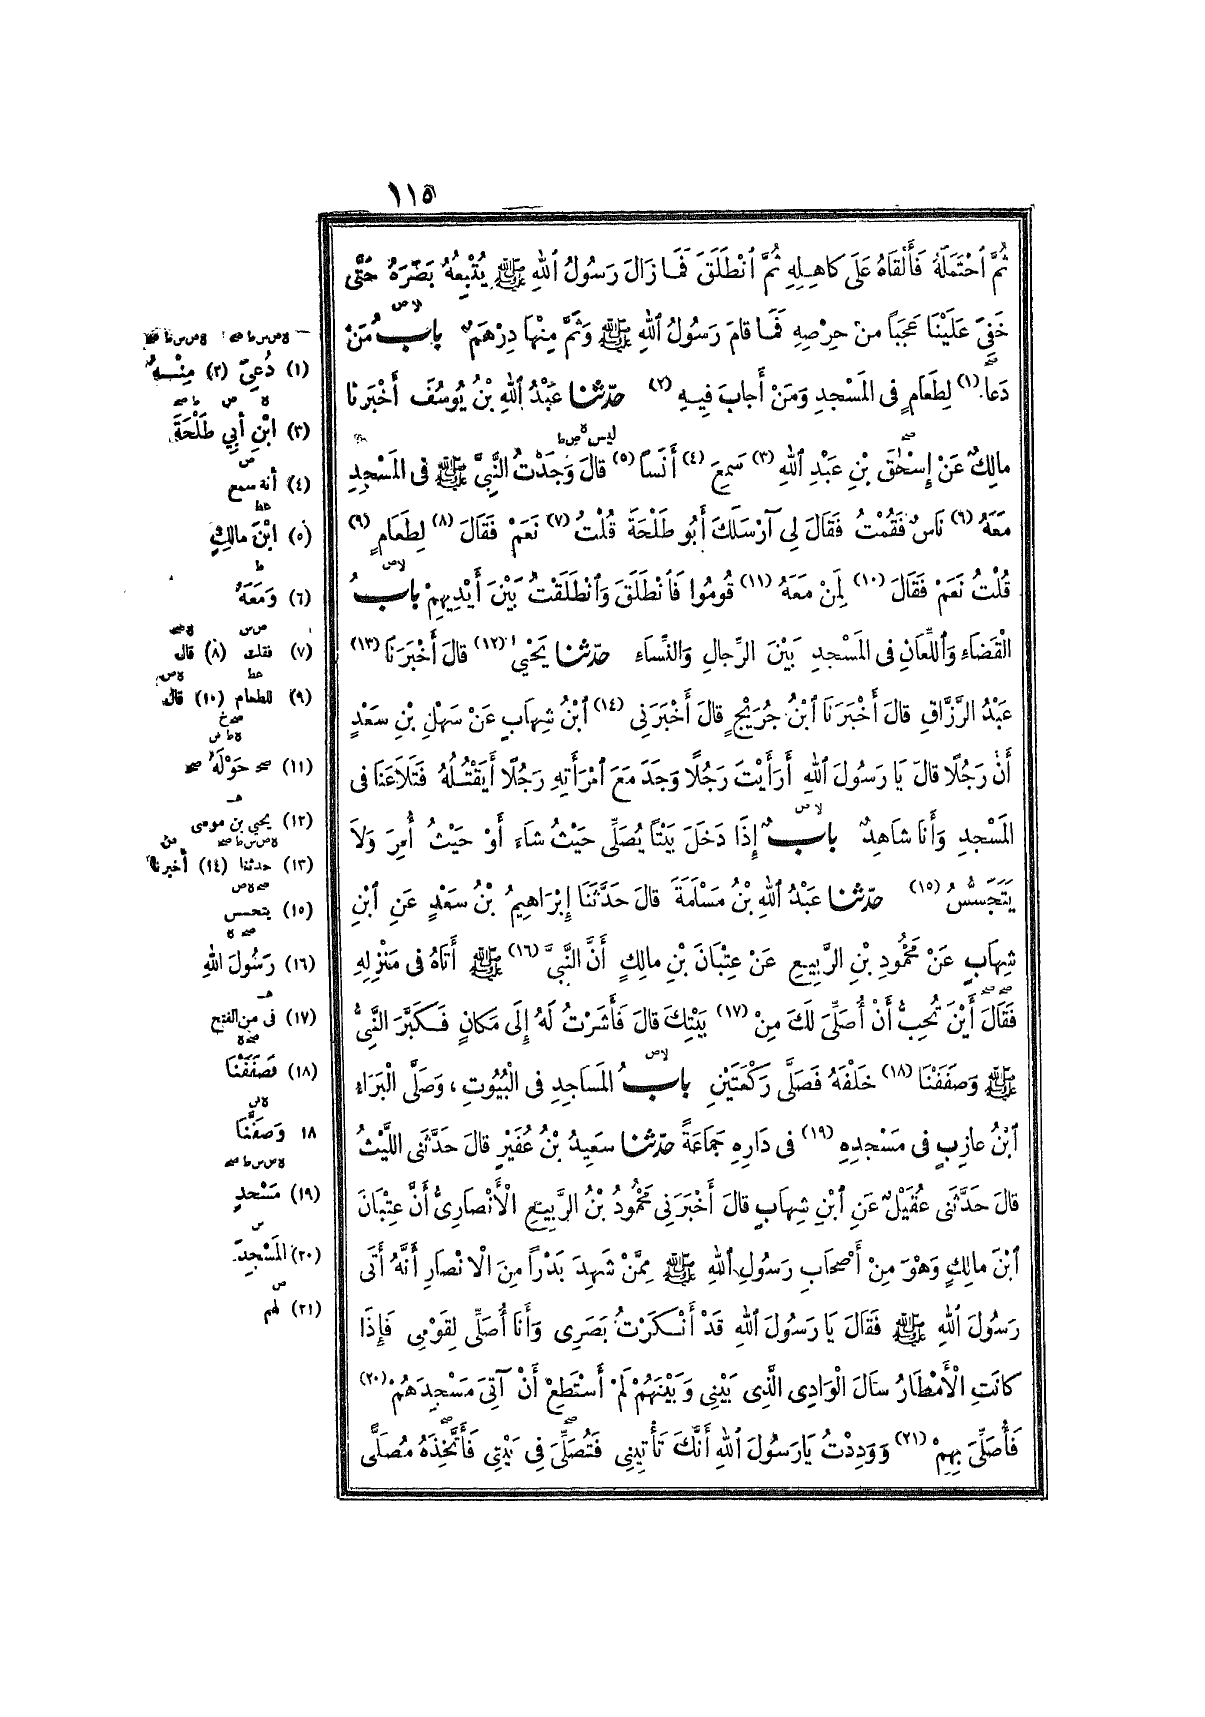 ١١٥
ثُمَّ ٱحْتَمَلَهُ فَأَلْقَاهُ عَلَى كَاهِلِهِ ثُمَّ ٱنْطَلَقَ فَمَا زَالَ رَسُولُ ٱللهِ ﷺ يُتْبِعُهُ بَصَرَهُ حَتَّى
خَفِيَ عَلَيْنَا عَجَبًا مِنْ حِرْصِهِ فَمَا قَامَ رَسُولُ ٱللهِ ﷺ وَثَمَّ مِنْهَا دِرْهَمٌ بابُ مَنْ
دَعَا (١) لِطَعَامٍ فِى المَسْجِدِ وَمَنْ أَجَابَ فِيهِ (٢) حدّثنا عَبْدُ ٱللهِ بْنُ يُوسُفَ أَخْبَرَنَا
مالِكٌ عَنْ إِسْحٰقَ بْنِ عَبْدِ ٱللهِ (٣) سَمِعَ (٤) أَنَسًا (٥) قالَ وَجَدْتُ النَّبِيَّ ﷺ فِى المَسْجِدِ
مَعَهُ (٦) نَاسٌ فَقُمْتُ فَقَالَ لِى آرْسَلَكَ أَبُو طَلْحَةَ قُلْتُ (٧) نَعَمْ فَقَالَ (٨) لِطَعَامٍ (٩)
قُلْتُ نَعَمْ فَقَالَ (١٠) لِمَنْ مَعَهُ (١١) قُومُوا فَٱنْطَلَقَ وَٱنْطَلَقْتُ بَيْنَ أَيْدِيهِمْ بابُ
القَضَاءِ وَٱللِّعَانِ فِى المَسْجِدِ بَيْنَ الرِّجالِ وَالنِّسَاءِ حدّثنا يَحْيٰى (١٢) قالَ أَخْبَرَنَا (١٣)
عَبْدُ الرَّزَّاقِ قالَ أَخْبَرَنَا ٱبْنُ جُرَيْجٍ قالَ أَخْبَرَنِى (١٤) ٱبْنُ شِهَابٍ عَنْ سَهْلِ بْنِ سَعْدٍ
أَنَّ رَجُلًا قالَ يَا رَسُولَ ٱللهِ أَرَأَيْتَ رَجُلًا وَجَدَ مَعَ ٱمْرَأَتِهِ رَجُلًا أَيَقْتُلُهُ فَتَلَاعَنَا فِى
المَسْجِدِ وَأَنَا شَاهِدٌ بابٌ إِذَا دَخَلَ بَيْتًا يُصَلِّى حَيْثُ شَاءَ أَوْ حَيْثُ أُمِرَ وَلَا
يَتَجَسَّسُ (١٥) حدّثنا عَبْدُ ٱللهِ بْنُ مَسْلَمَةَ قالَ حَدَّثَنَا إِبْرَاهِيمُ بْنُ سَعْدٍ عَنِ ٱبْنِ
شِهَابٍ عَنْ مَحْمُودِ بْنِ الرَّبِيعِ عَنْ عِتْبَانَ بْنِ مالِكٍ أَنَّ النَّبِيَّ (١٦) ﷺ أَتَاهُ فِى مَنْزِلِهِ
فَقَالَ أَيْنَ تُحِبُّ أَنْ أُصَلِّىَ لَكَ مِنْ (١٧) بَيْتِكَ قالَ فَأَشَرْتُ لَهُ إِلَى مَكَانٍ فَكَبَّرَ النَّبِيُّ
ﷺ وَصَفَفْنَا (١٨) خَلْفَهُ فَصَلَّى رَكْعَتَيْنِ بابُ المَسَاجِدِ فِى الْبُيُوتِ، وَصَلَّى الْبَرَاءُ
ٱبْنُ عَازِبٍ فِى مَسْجِدِهِ (١٩) فِى دَارِهِ جَمَاعَةً حدّثنا سَعِيدُ بْنُ عُفَيْرٍ قالَ حَدَّثَنِى اللَّيْثُ
قالَ حَدَّثَنِى عُقَيْلٌ عَنِ ٱبْنِ شِهَابٍ قالَ أَخْبَرَنِى مَحْمُودُ بْنُ الرَّبِيعِ الْأَنْصَارِىُّ أَنَّ عِتْبَانَ
ٱبْنَ مالِكٍ وَهْوَ مِنْ أَصْحَابِ رَسُولِ ٱللهِ ﷺ مِمَّنْ شَهِدَ بَدْرًا مِنَ الْانْصَارِ أَنَّهُ أَتَى
رَسُولَ ٱللهِ ﷺ فَقَالَ يَا رَسُولَ ٱللهِ قَدْ أَنْكَرْتُ بَصَرِى وَأَنَا أُصَلِّى لِقَوْمِى فَإِذَا
كانَتِ الْأَمْطَارُ سَالَ الْوَادِى الَّذِى بَيْنِى وَبَيْنَهُمْ لَمْ أَسْتَطِعْ أَنْ آتِىَ مَسْجِدَهُمْ (٢٠)
فَأُصَلِّىَ بِهِمْ (٢١) وَوَدِدْتُ يَارَسُولَ ٱللهِ أَنَّكَ تَأْتِينِى فَتُصَلِّىَ فِى بَيْتِى فَأَتَّخِذَهُ مُصَلًّى
(١) دُعِيَ (٢) مِنْهُ
(٣) ابْنِ أَبِي طَلْحَةَ
(٤) أنه سمع
(٥) ابْنَ مالِكٍ
(٦) وَمَعَهُ
(٧) فقلت (٨) قال
(٩) للطعام (١٠) قال
(١١) صح حَوْلَهُ صح
(١٢) يحيى بن موسى
(١٣) حدثنا (١٤) أخبرنا
(١٥) يتحسس
(١٦) رَسُولَ اللهِ
(١٧) فى من الفتح
(١٨) فَصَفَفْنَا
١٨ وَصَفَّنَا
(١٩) مَسْجِدٍ
(٢٠) المَسْجِدَ
(٢١) لهم